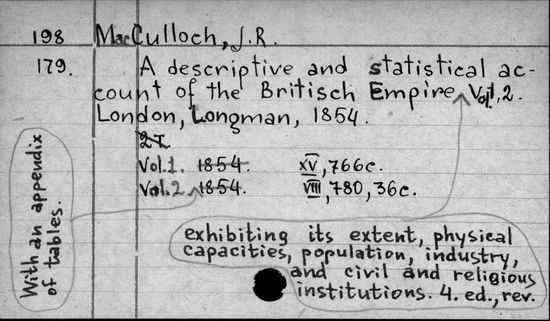 198 MacCulloch, J.R.
179. A descriptive and statistical ac-
count of the Britisch Empire Vol 1, 2.
London, Longman, 1854.
2T.
Vol.1. 1854. XV, 766c.
Vol.2 1854. VIII, 780, 36c.
With an appendix
of tables.
exhibiting its extent, physical
capacities, population, industry,
and civil and religious
institutions. 4. ed., rev.